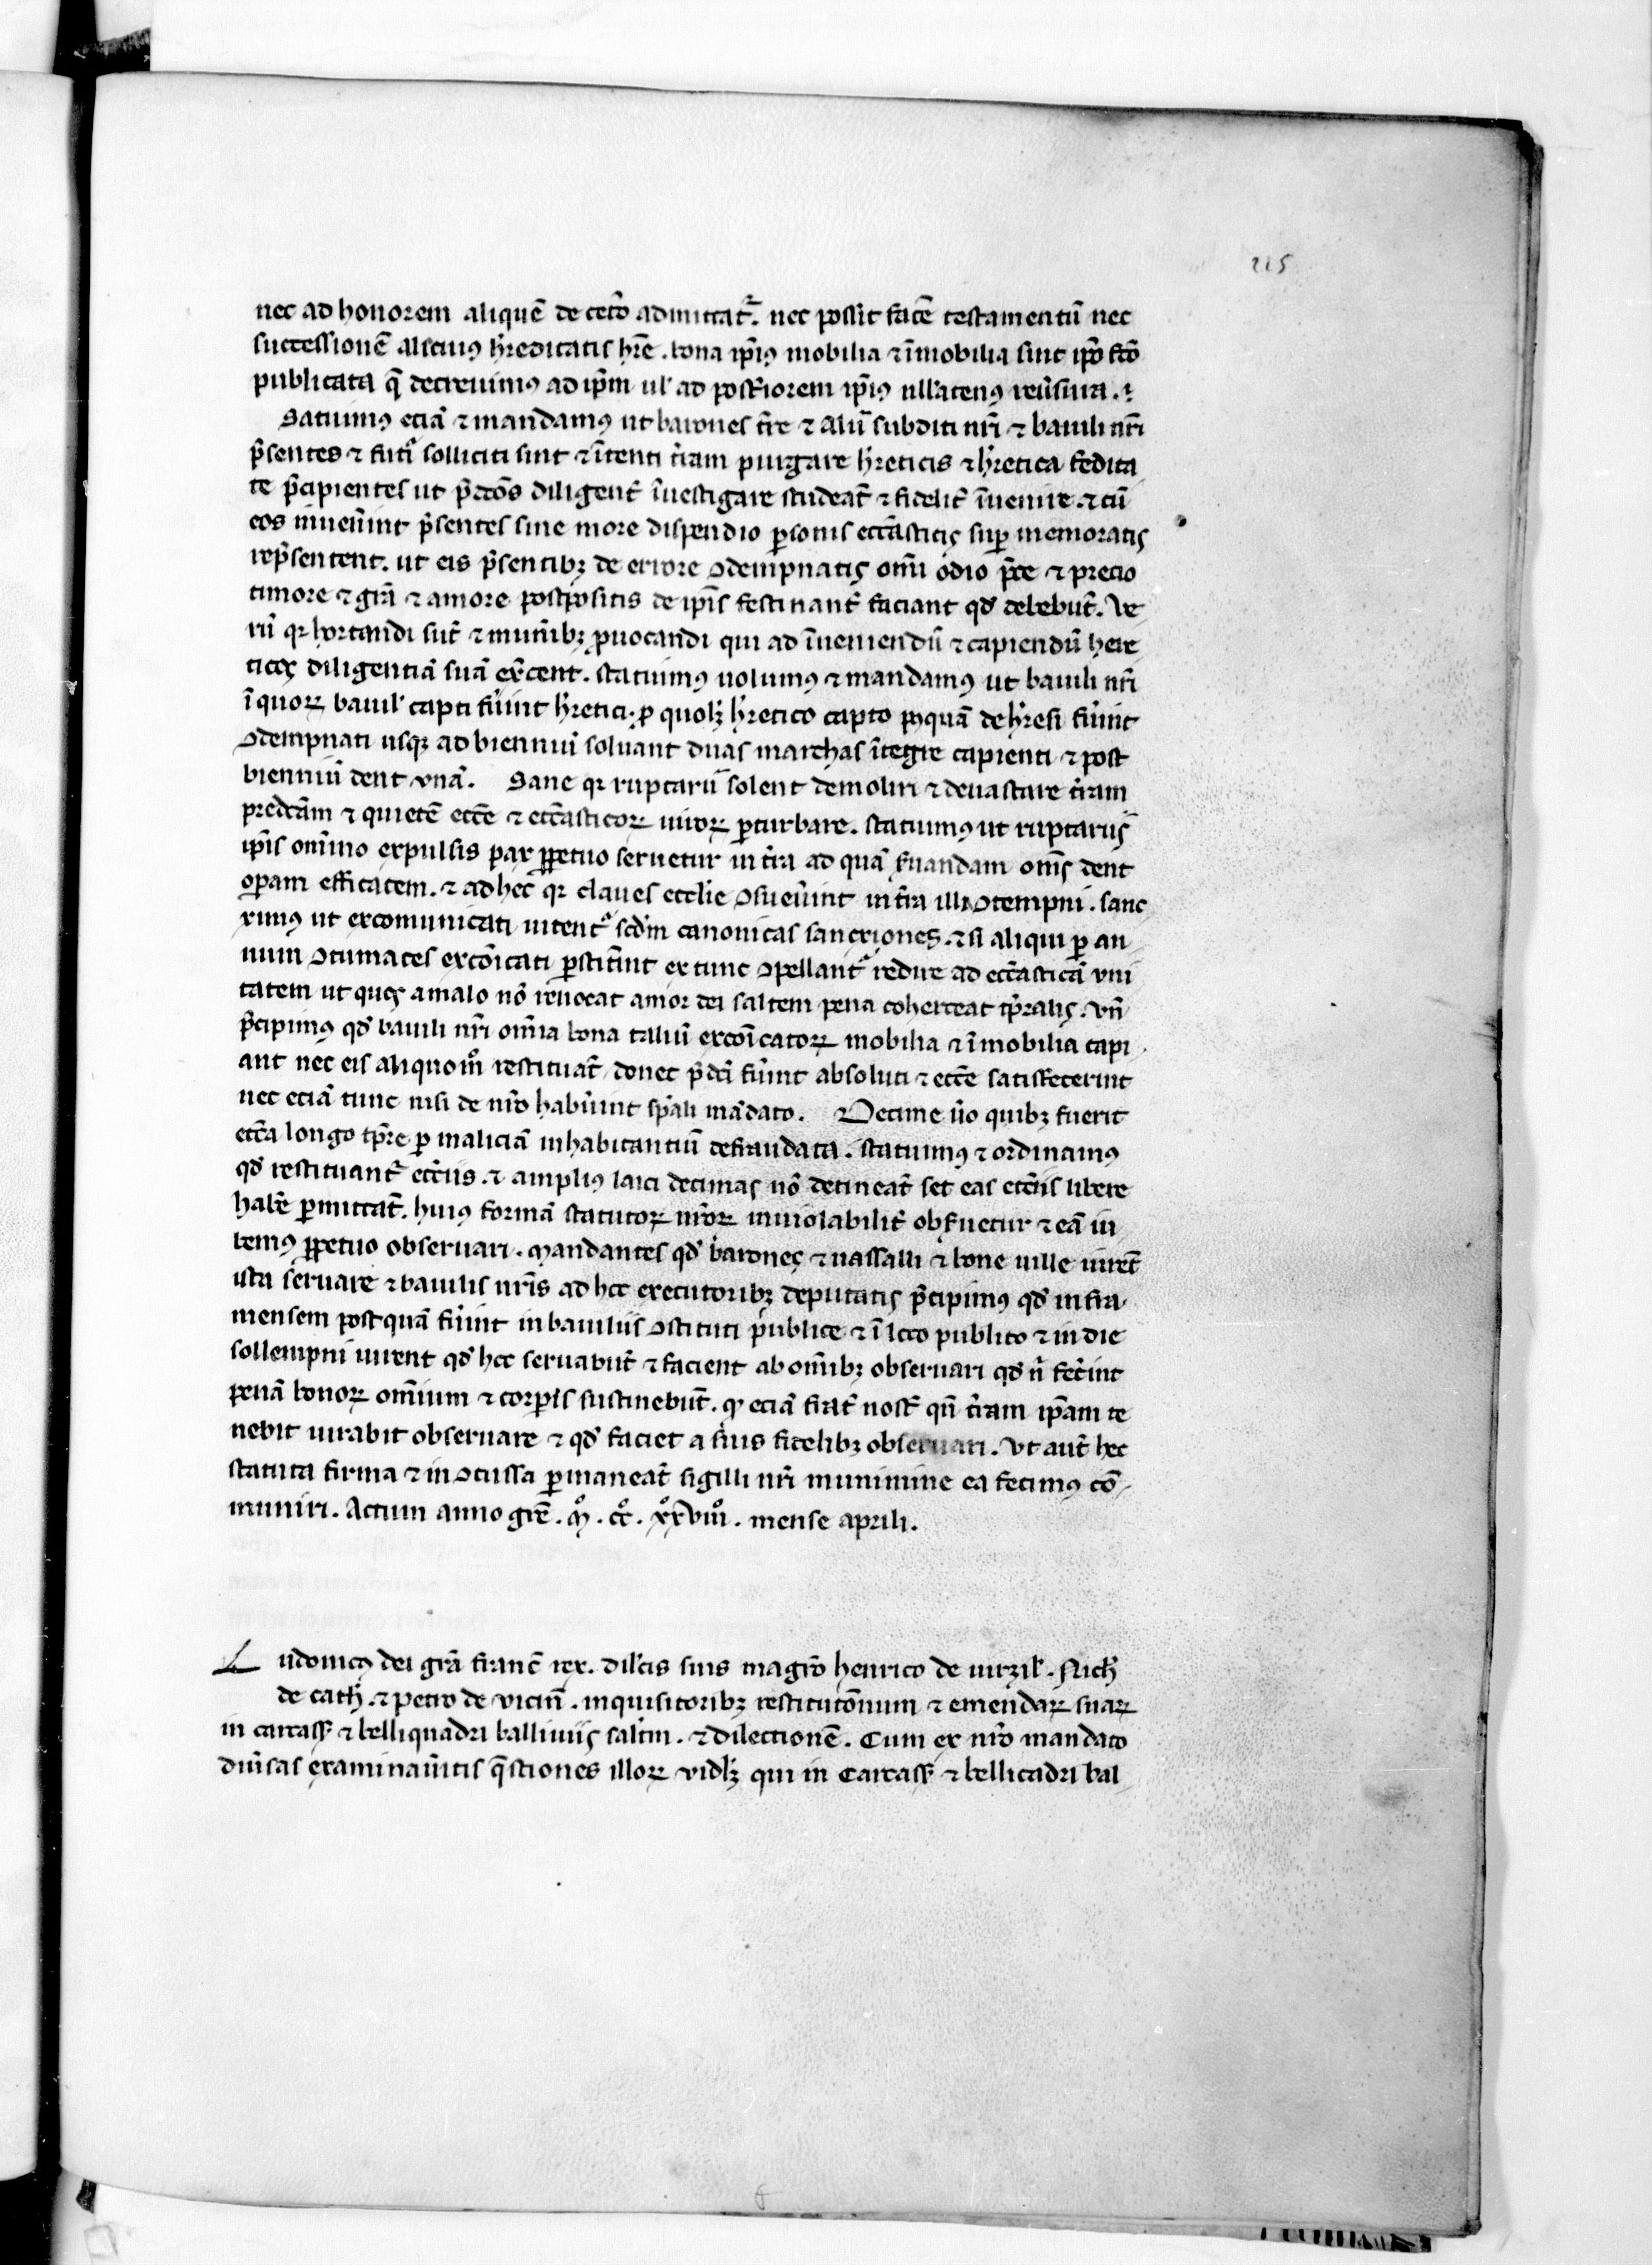 215
nec ad honorem aliquē de cet̃o admittat᷑. nec possit fac̃e testamentū nec
successionē alicuiꝰ h̃editatis hr̃e. bona ip̃iꝰ mobilia ⁊ īmobilia sint ip̃o fc̃o
publicata q̃ decreuimus ad ip̃m ul̓ ad post̃iorem ip̃iꝰ ullatenꝰ reũsura. ⁊
Satuimꝰ eciā ⁊ mandamꝰ ut barones t̃re ⁊ alii subditi nr̃i ⁊ bauili nr̃i
p̃sentes ⁊ fut᷑i solliciti sint ⁊ ītenti t̃ram purgare h̃reticis ⁊ h̃retica fedita
te p̃cipientes ut p̃dc̃os diligent̃ īuestigare studeāt ⁊ fidelit̃ īuenire. ⁊ cū
eos inuen̄int p̃sentes sine more dispendio ꝑsonis ecc̃asticis suꝑ memoratis
rep̃sentent. ut eis p̃sentibꝫ de errore ꝯdempnatis om̄i odio p̃ce ⁊ precio
timore ⁊ gr̃a ⁊ amore postpositis de ip̃is festinant̃ faciant qd̓ debebūt. Ve
rū qꝛ hortandi sūt ⁊ mun̄ibꝫ ꝓuocandi qui ad īueniendū ⁊ capiendū here
ticos diligentiā suā exc̃ent. statuimus uolumꝰ ⁊ mandamꝰ ut bauili nr̃i
ī quoꝝ bauil̓ capti fũint h̃retici. ꝑ quolꝫ h̃retico capto pꝰquā de h̃resi fũint
ꝯdempnati usqꝫ ad bienniū soluant duas marchas ītegre capienti ⁊ post
bienniū dent vnā. Sane qꝛ ruptarii solent demoliri ⁊ deuastare t̃ram
predc̃am ⁊ quietē ecc̃e ⁊ ecc̃asticoꝝ uiroꝝ ꝑturbare. statuimꝰ ut ruptariis
ip̃is om̄ino expulsis pax ꝑpetuo seruetur in t̃ra ad quā ẜuandam om̄s dent
oꝑam efficacem. ⁊ ad hec qꝛ claues ecclie ꝯsueũint in t̃ra illa ꝯtempni. sanc
ximus ut excomunicati uitent᷑ scd̄m canonicas sanxiones. ⁊ si aliqui ꝑ an
num ꝯtumaces excōicati ꝑstit̃int ex tunc ꝯpellant᷑ redire ad ecc̃asticā vni
tatem ut quos a malo nō reuocat amor dei saltem pena coherceat tp̃ralis. vn̄
p̃cipimus qd̓ bauili nr̃i om̄ia bona taliū excōicatoꝝ mobilia ⁊ īmobilia capi
ant nec eis aliquom̊ restituāt donec p̃dc̃i fũint absoluti ⁊ ecc̃e satisfecerint
nec eciā tunc nisi de nr̃o habũint sp̃ali mādato. Decime ũo quibꝫ fuerit
ecc̃a longo tp̃re ꝑ maliciā inhabitantiū defraudata. statuimus ⁊ ordinamus
qd̓ restituant᷑ ecc̃iis. ⁊ amplius laici decimas nō detineāt set eas ecc̃iis libere
hab̃e ꝑmittāt. huiꝰ formā statutoꝝ nr̃oꝝ inuiolabilit̃ obẜuetur ⁊ eā iu
bemꝰ ꝑpetuo obseruari. Mandantes qd̓ barones ⁊ uassalli ⁊ bone uille iurēt
ista seruare ⁊ bauilis nr̃is ad hec executoribꝫ deputatis p̃cipimus qd̓ infra
mensem postquā fũint in bauiliis ꝯstituti publice ⁊ ī loco publico ⁊ in die
sollempni iurent qd̓ hec seruabūt ⁊ facient ab om̄ibꝫ obseruari qd̓ ñ fec̃int
penā bonoꝝ om̄ium ⁊ corꝑis sustinebūt. qꝰ eciā frat̃ nost̃ qn̄ t̃ram ip̃am te
nebit iurabit obseruare ⁊ qd̓ faciet a suis fidelibꝫ obseruari. Vt aut̃ hec
statuta firma ⁊ in ꝯcussa ꝑmaneāt sigilli nr̃i munimine ea fecimꝰ cō
muniri. Actum anno gr̃e. M̊. cc̊. xx̊viii̊. mense aprili.
Ludouicꝰ dei gr̃a franc̃ rex. dilc̃is suis magr̃o henrico de uirzil̓. Nich̓
de cath̓. ⁊ petro de vicin̄. inquisitoribꝫ restitutōnum ⁊ emendaꝝ suaꝝ
in carcass̓ ⁊ belliquadri balliuiis sal̓tm. ⁊ dilectionē. Cum ex nr̃o mandato
diũsas examinaũitis q̃stiones illoꝝ vidlꝫ qui in Carcass̓ ⁊ bellicadri bal